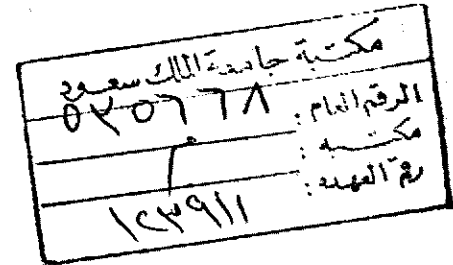 مكتبة جامعة الملك سعود
الرقم العام :
مكتبه :
رقم العهده : ١٢٣٩١١